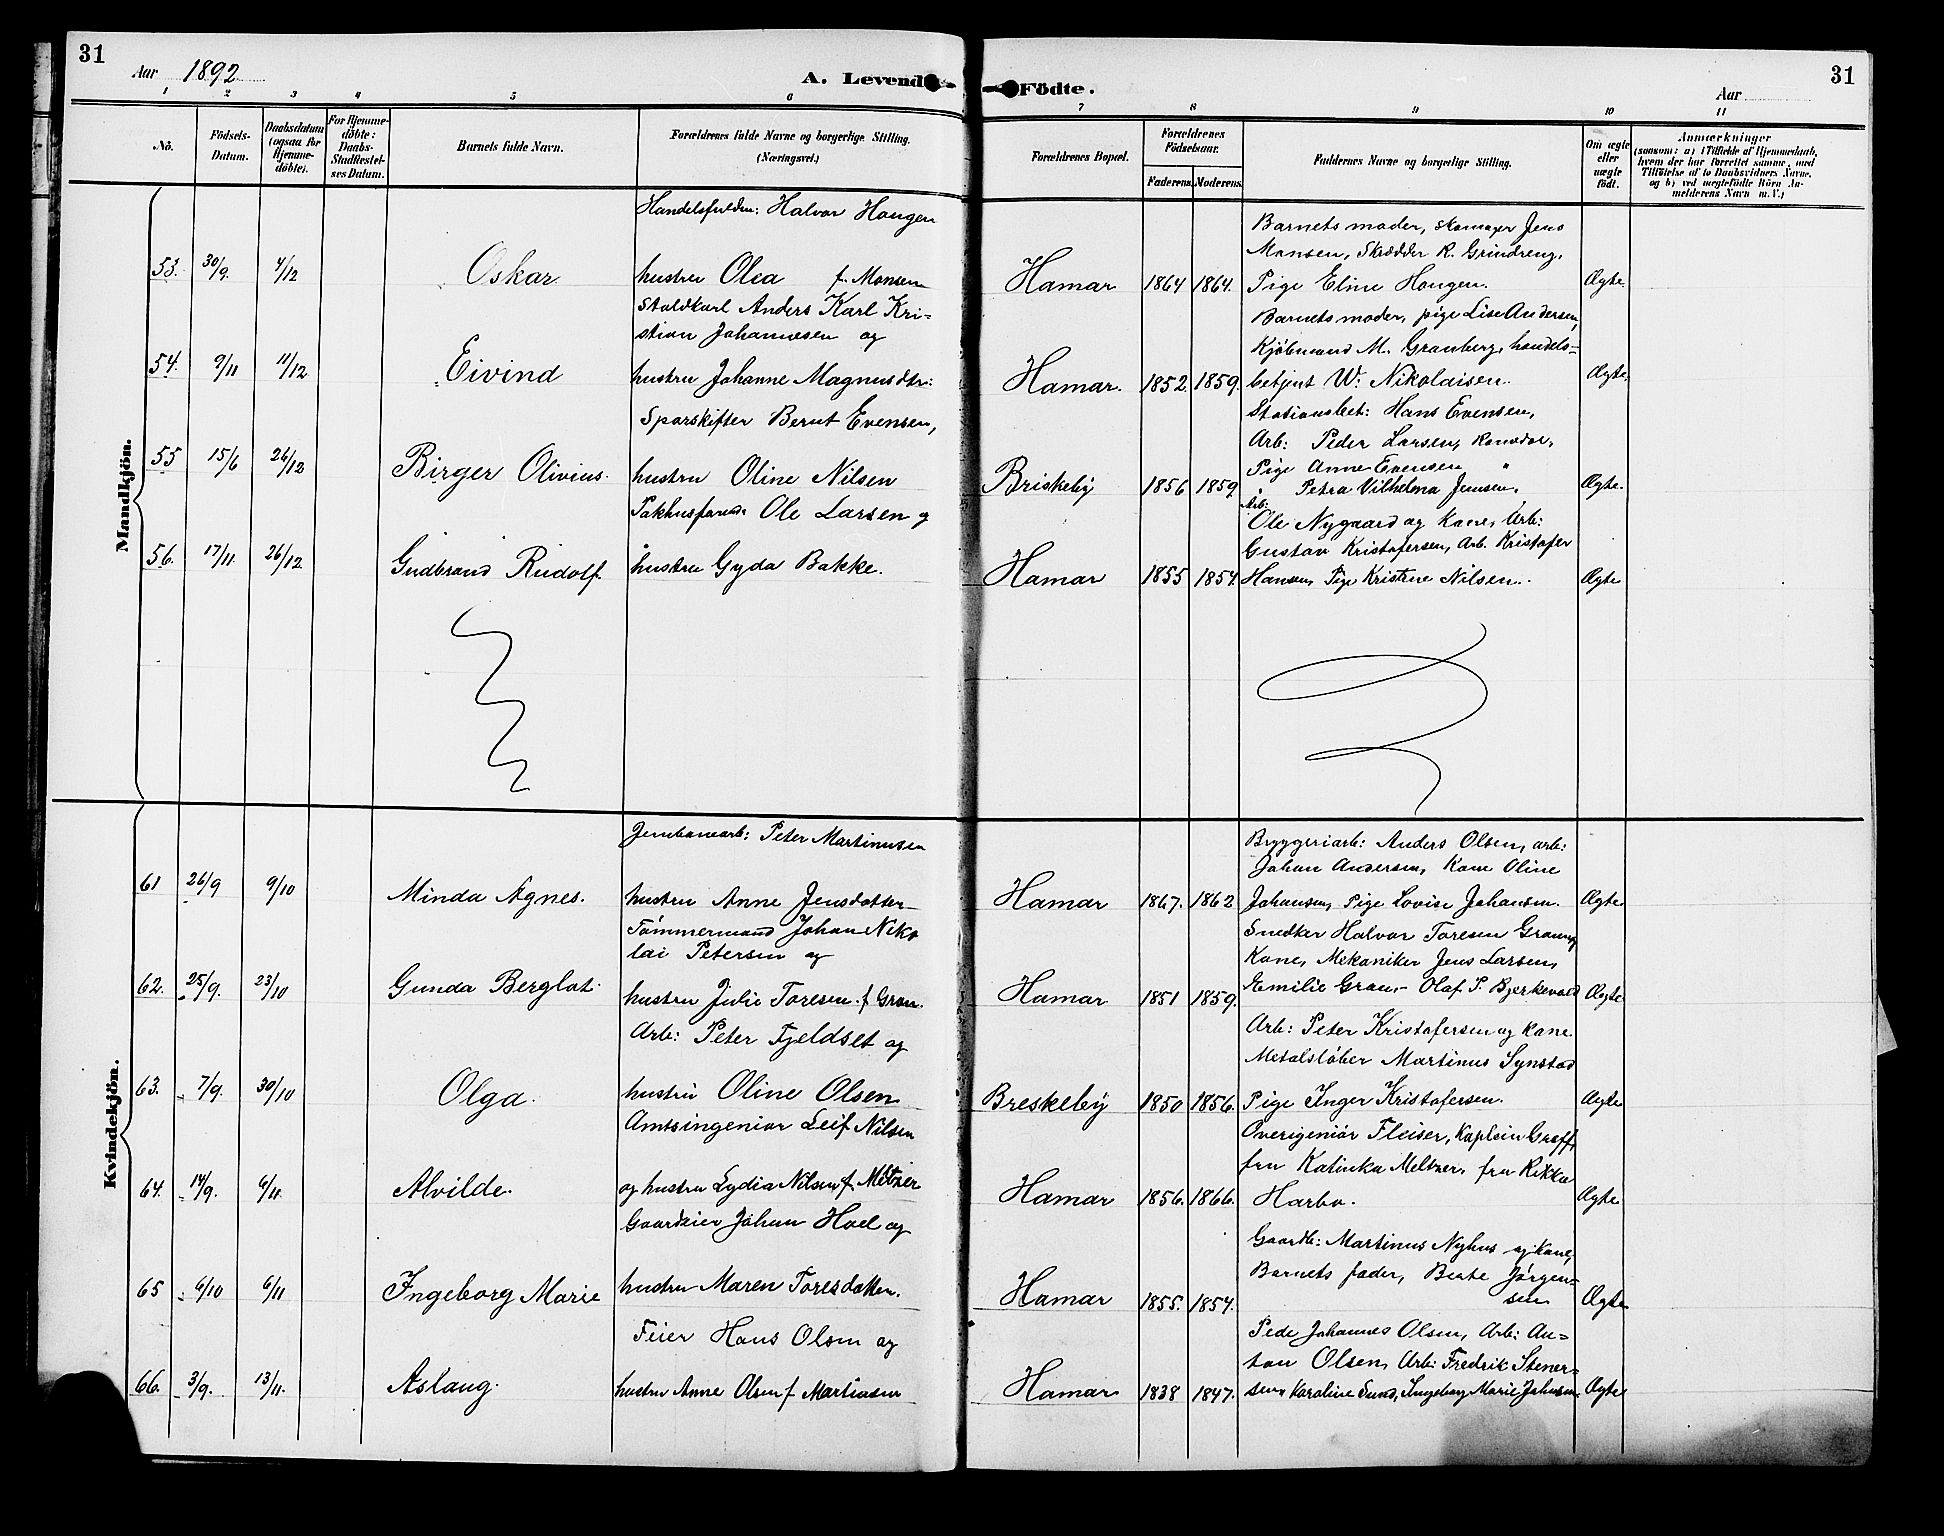 31
Aar 1892
A. Levende
Födte.
Aar
31
1 2 3 4 5 6 7 8 9 10 11
No.
Födsels-Datum.
Daabsdatum (ogsaa for Hjemme-döbte).
For Hjemme-döbte: Daabs-Stadfæstel-ses Datum.
Barnets fulde Navn.
Forældrenes fulde Navne og borgerlige Stilling. (Næringsvei.)
Forældrenes Bopæl.
Forældrenes Födselsaar.
Faderens. Moderens.
Faddernes Navne og borgerlige Stilling.
Om ægte eller uægte födt.
Anmærkninger
(saasom: a) i Tilfælde af Hjemmedaab,
hvem der har forrettet samme, med
Tilföielse af to Daabsvidners Navne,
og b) ved uægtefödte Börn An-
melderens Navn m. V.)
Mandkjön.
Handelsfuldm: Halvor Haugen
Barnets moder, skomager Jens
Monsen, Skrædder R. Grindreng,
53. 30/9. 4/12 Oskar. hustru Olea f. Monsen Hamar 1864 1864. Pige Eline Haugen. Ægte.
Staldkarl Anders Karl Kri=
stian Johannesen og
Barnets moder, pige Lise Andersen,
Kjöbmand M. Granberg, handels=
54. 9/11 11/12 Eivind hustru Johanne Magnusdtr: Hamar. 1852. 1859. betjent W: Nikolaisen. Ægte.
Sporskifter Bernt Evensen,
Stationsbet: Hans Evensen,
Arb: Peder Larsen,
Pige Anne Evensen
55 15/6 26/12 Birger Olivius. hustru Oline Nilsen Briskeby 1856 1859 " Petra Vilhelma Jensen. Ægte.
Pakhusform: Ole Larsen og
Arb: Ole Nygaard og Kone, Arb:
Gustav Kristofersen, Arb. Kristofer
56. 17/11. 26/12 Gudbrand Rudolf. hustru Gyda Bakke. Hamar 1855 1854 Hansen, Pige Kristine Nilsen. Ægte
Kvindekjön.
Jernbanearb: Peter Martinusen
Bryggeriarb: Anders Olsen, arb:
Johan Andersen, Kone Oline
61 26/9 9/10 Minda Agnes. hustru Anne Jensdatter Hamar 1867. 1862 Johansen, Pige Lovise Johansen. Ægte
Tömmermand Johan Niko
lai Petersen og
Snedker Halvor Toresen Gran og
Kone, Mekaniker Jens Larsen,
62. 25/9. 23/10 Gunda Berglot. hustru Julie Toresen f. Gran. Hamar 1851 1859. Emilie Gran, Olaf P. Bjerkevold Ægte
Arb: Peter Fjeldset og
Arb: Peter Kristofersen og kone
Metalstöber Martinus Synstad
63. 7/9. 30/10 Olga. hustru Oline Olsen Breskeby 1850 1856. Pige Inger Kristofersen. Ægte
Amtsingeniör Leif Nilsen
Overigeniör Fleiser, Kaptein Graff,
fru Katinka Meltzer, fru Rikka
64. 14/9. 6/11. Alvilde. og hustru Lydia Nilsen f. Meltzer Hamar 1856. 1866. Harbo. Ægte
Gaardeier Johan Hoel og
Gaardb: Martinus Nyhus og Kone,
Barnets fader, Beate Jörgen=
sen
65 6/10 6/11 Ingeborg Marie hustru Maren Toresdatter. Hamar 1855. 1854. Ægte
Feier Hans Olsen og
Johannes Olsen, Arb: An=
ton Olsen, Arb: Fredrik Stener=
66. 3/9. 13/11. Aslaug. hustru Anne Olsen f. Martinsen Hamar 1838 1847. sen, Karoline Sund, Ingeborg Marie Johnsen. Ægte